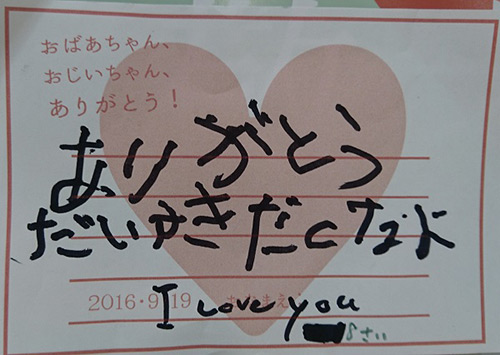 おばあちゃん、
おじいちゃん、
ありがとう！
ありがとう
だいすきだ
2016・9・19 おなまえ
I Love you
さい